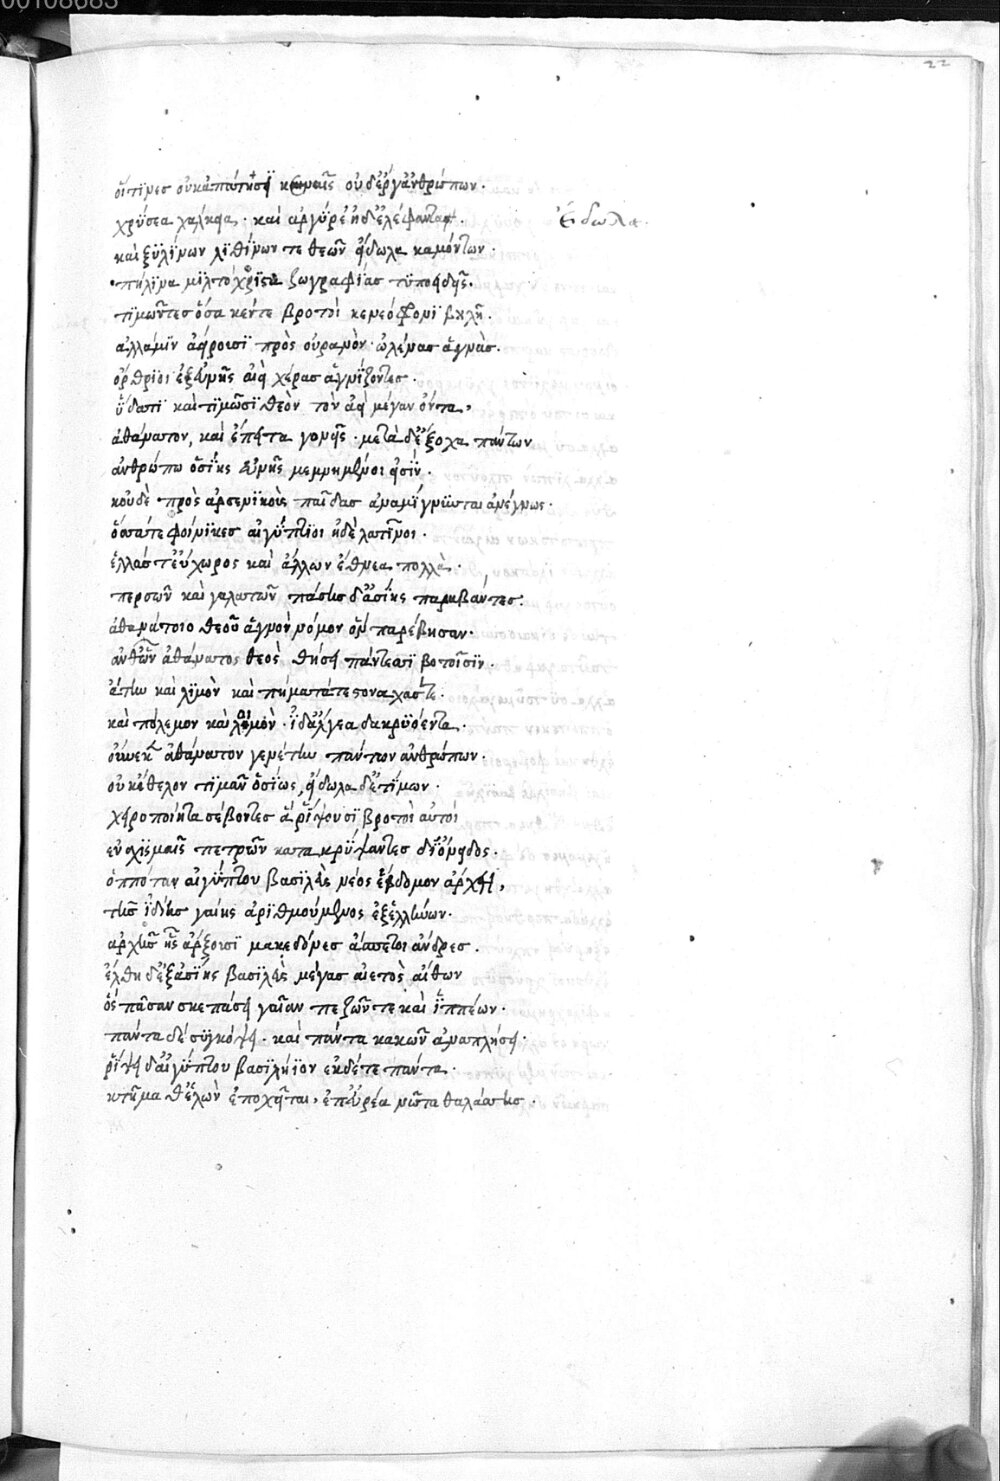 00108683
22
οἵτινες οὐκ ἀπάτησι κεναῖς οὐδ' ἔργ' ἀνθρώπων.
χρύσεα χάλκεα. καὶ ἀργύρε' ἠδ' ἐλέφαντος. εἴδωλα.
καὶ ξυλίνων λιθίνων τε θεῶν εἴδωλα καμόντων.
πήλινα μιλτόχριστα ζωγραφίας τυποειδεῖς.
τιμῶντες ὅσα κέν τε βροτοὶ κενεόφρονι βουλῇ.
ἀλλα μὲν ἀείρουσι πρὸς οὐρανὸν ὠλένας ἁγνάς.
ὄρθριοι ἐξ εὐνῆς αἰεὶ χέρας ἁγνίζοντες.
ὕδατι καὶ τιμῶσι θεὸν τὸν ἀεὶ μέγαν ὄντα,
ἀθάνατον, καὶ ἔπειτα γονεῖς. μετὰ δ' ἔξοχα πάντων
ἀνθρώπων ὁσίης εὐνῆς μεμνημένοι εἰσίν.
κοὐδὲ πρὸς ἀρσενικοὺς παῖδας ἀναμίγνυνται ἀνέγνως.
ὅσσα τε φοίνικες αἰγύπτιοι ἠδὲ λατῖνοι.
ἑλλάς τ' εὐρύχωρος καὶ ἄλλων ἔθνεα πολλὰ.
περσῶν καὶ γαλατῶν πάσης δ' ἀσίης παραβάντες.
ἀθανάτοιο θεοῦ ἁγνὸν νόμον ὃν παρέβησαν.
ἀνθ' ὧν ἀθάνατος θεὸς θήσει πάντεσσι βοτοῖσιν.
ἄτην καὶ λιμὸν καὶ πήματά τε στοναχάς τε.
καὶ πόλεμον καὶ λοιμὸν. ἰδ' ἄλγεα δακρυόεντα.
οὕνεκ' ἀθάνατον γενέτην πάντων ἀνθρώπων.
οὐκ ἔθελον τιμᾶν ὁσίως, εἴδωλα δ' ἐτίμων.
χειροποίητα σέβοντες ἃ ῥίψουσι βροτοὶ αὐτοί
ἐν σχισμαῖς πετρῶν κατακρύψαντες δι' ὄνειδος.
ὁππόταν αἰγύπτου βασιλεὺς νέος ἕβδομον ἄρχει,
τῆς ἰδίης γαίης ἀριθμούμενος ἐξ ἑλλήνων.
ἀρχῆς ἧς ἄρξουσι μακεδόνες ἄσπετοι ἄνδρες.
ἔλθη δ' ἐξ ἀσίης βασιλεὺς μέγας αἰετὸς αἴθων
ὃς πᾶσαν σκεπάσει γαῖαν πεζῶν τε καὶ ἱππέων.
πάντα δὲ συγκόψει. καὶ πάντα κακῶν ἀναπλήσει.
ῥίψει δ' αἰγύπτου βασιλήϊον ἐκ δέ τε πάντα.
κτῆμα θ' ἑλὼν ἐποχεῖται, ἐπ' εὐρέα νῶτα θαλάσσης.